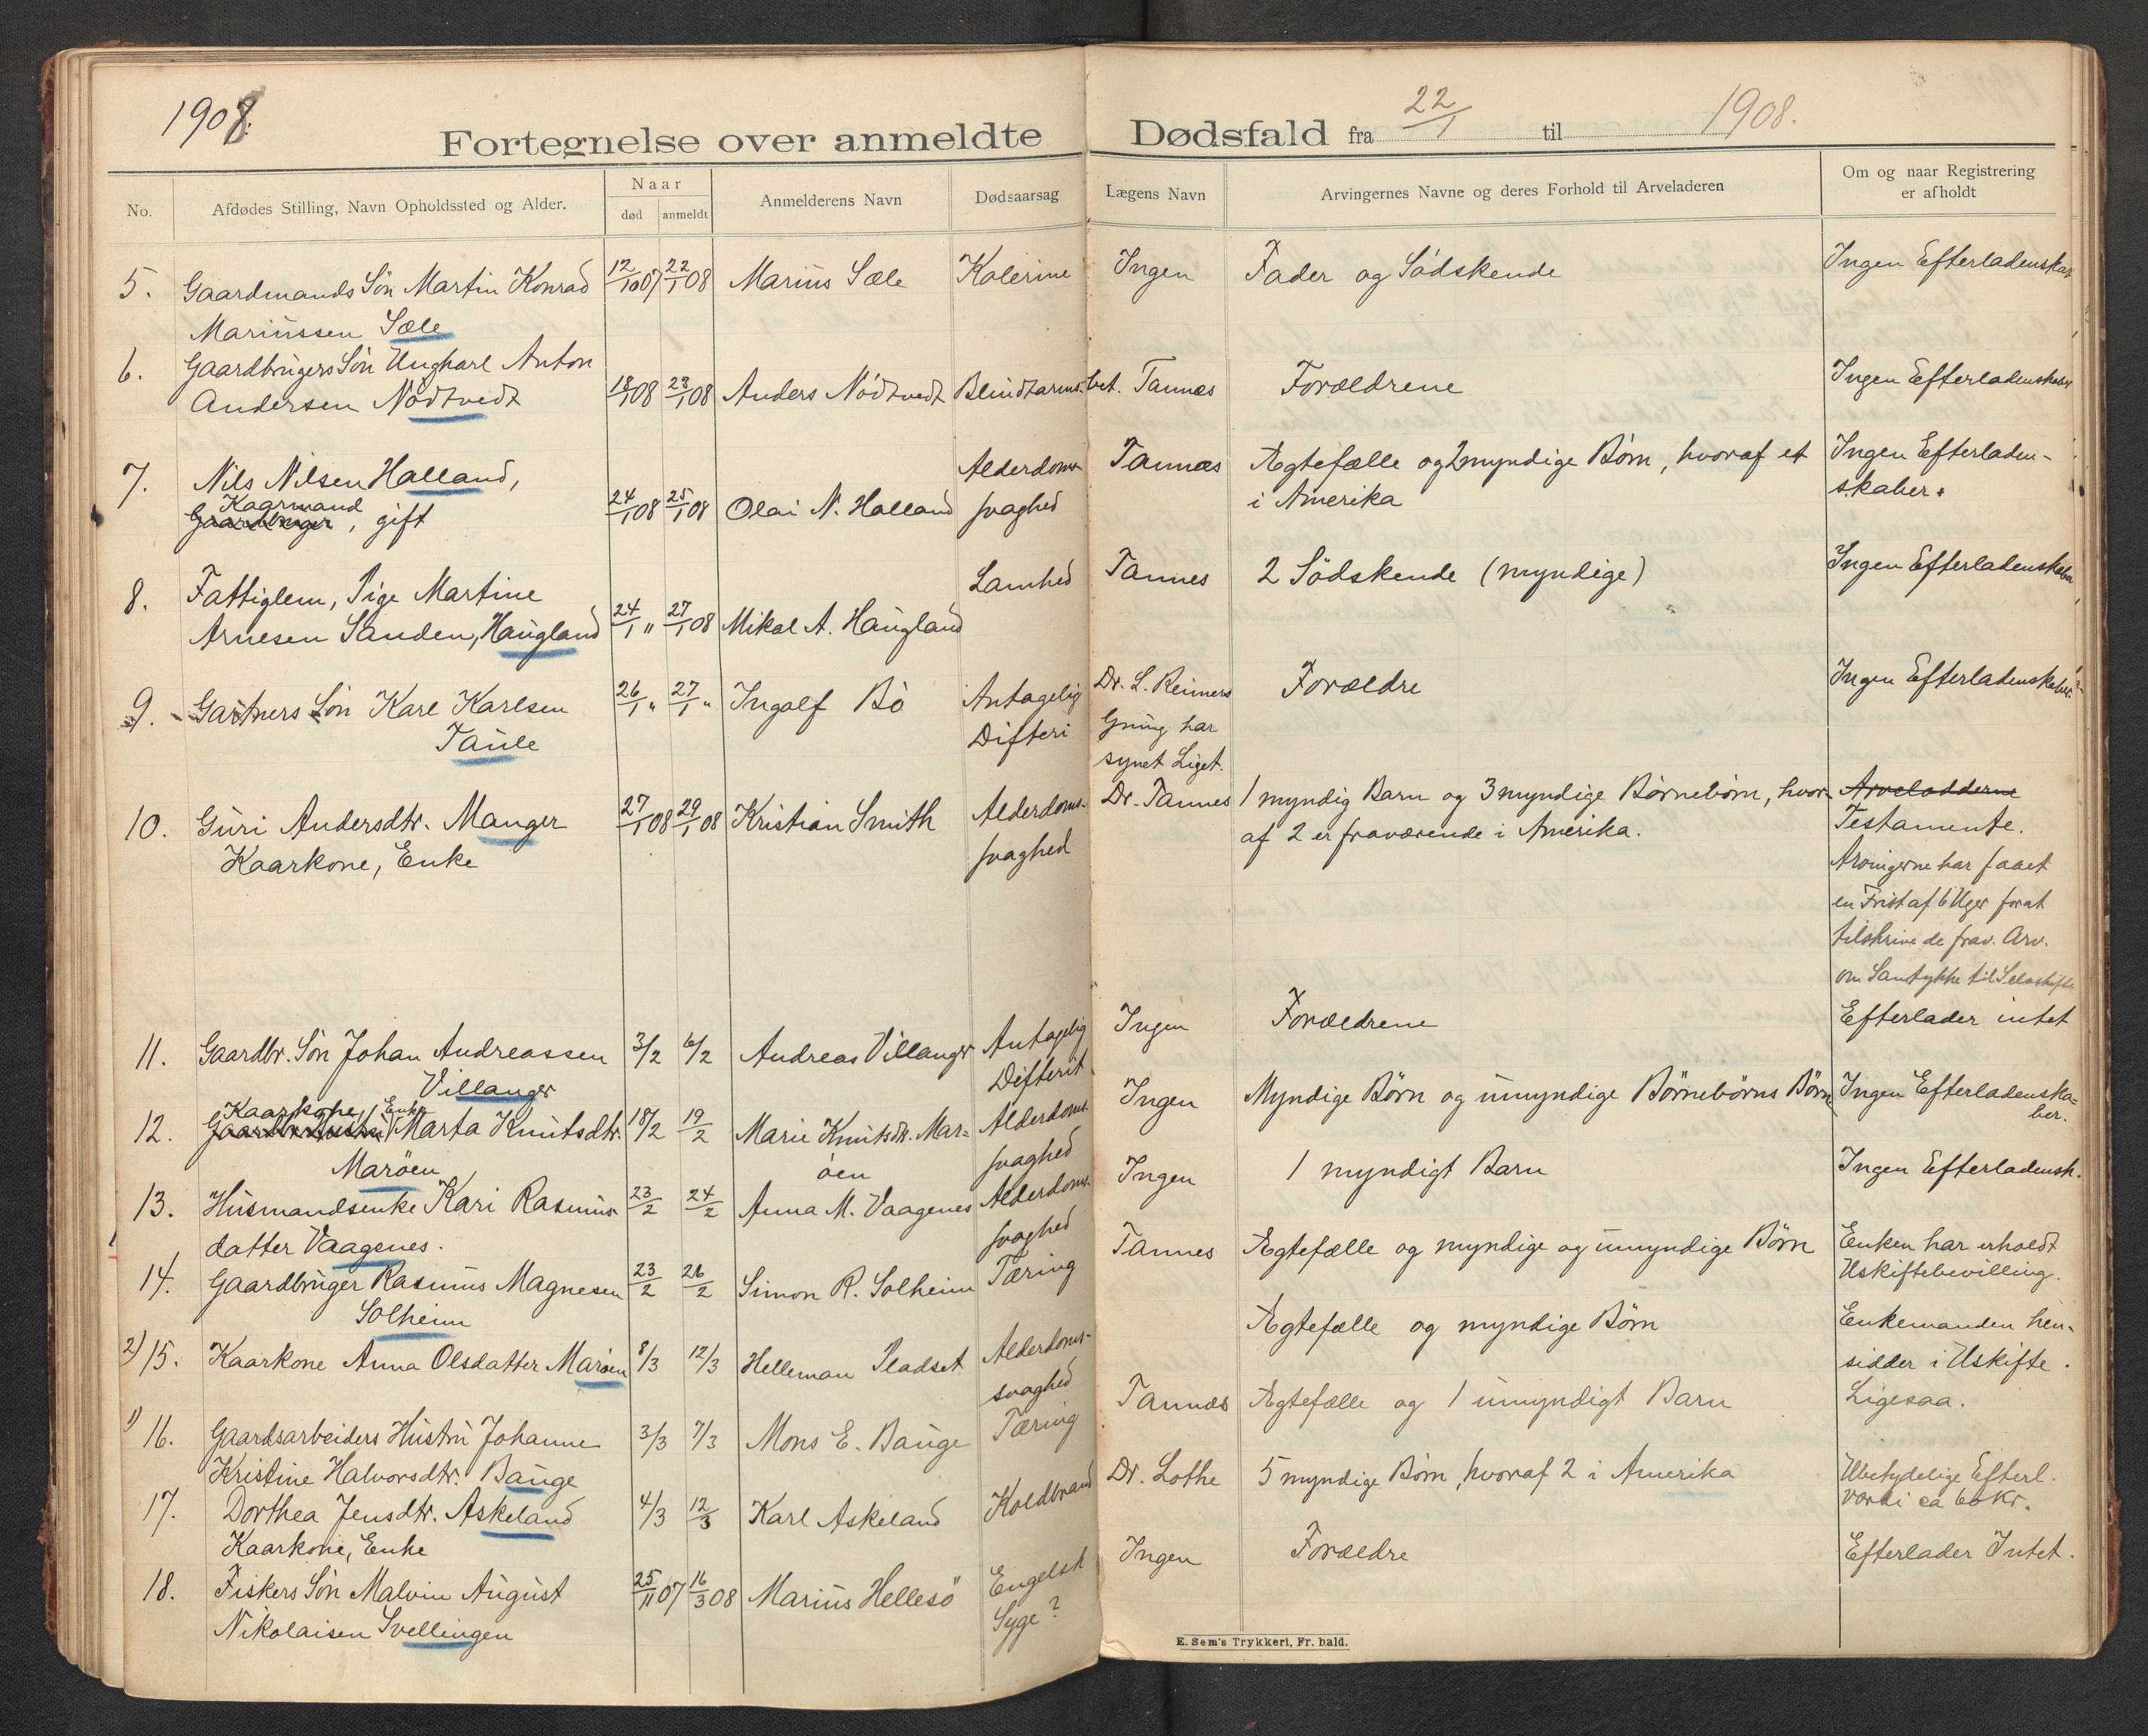 1908.
Fortegnelse over anmeldte Dødsfald fra 22/1 til 1908.
No.
Afdødes Stilling, Navn Opholdssted og Alder.
Naar
død
anmeldt
Anmelderens Navn
Dødsaarsag
Lægens Navn
Arvingernes Navne og deres Forhold til Arveladeren
Om og naar Registrering
er afholdt
5. Gaardmands Søn Martin Konrad 12/10 07 22/1 08 Marius Sæle Kolerine Ingen Fader og Södskende Ingen Efterladenskab
Mariussen Sæle
6. Gaardbrugers Søn Ungkarl Anton
Andersen Nödtvedt 18/1 08 23/1 08 Anders Nödtvedt Blindtarmsbet. Tannes Forældrene Ingen Efterladenskaber
7. Nils Nilsen Halland, Alderdoms- Tannæs Ægtefælle og 2 myndige Börn, hvoraf et Ingen Efterladen-
Kaarmand
Gaardbruger, gift 24/1 08 25/1 08 Olai N. Halland svaghed i Amerika skaber.
8. Fattiglem, Pige Martine Lamhed Tannes 2 Södskende (myndige) Ingen Efterladenskaber
Arnesen Sanden, Haugland 24/1 " 27/1 08 Mikal A. Haugland
9. Gartners Søn Karl Karlsen 26/1 " 27/1 " Ingolf Bö Antagelig Dr. L. Reimers Forældre Ingen Efterladenskaber
Taule Difteri Gning har
synet Liget.
10. Guri Andersdtr. Manger 27/1 08 29/1 08 Kristian Smith Alderdoms- Dr. Tannes 1 myndig Barn og 3 myndige Börnebörn, hvor- Arveladderne
Kaarkone, Enke svaghed af 2 er fraværende i Amerika. Testamente.
Arvingerne har faaet
en Frist af 6 Uger forat
tilskrive de frav. Arv.
om Samtykke til Selvskifte
11. Gaardbr. Søn Johan Andreassen 3/2 6/2 Andreas Villanger Antagelig Ingen Forældrene Efterlader intet
Villanger Difterit
Kaarkone, Enke
12. Marta Knutsdtr. 18/2 19/2 Marie Knutsdtr. Mar= Alderdoms- Ingen Myndige Börn og umyndige Börnebörns Börn Ingen Efterladenska=
Maröen öen svaghed ber.
13. Husmandsenke Kari Rasmus- 23/2 24/2 Anna M. Vaagenes Alderdoms- Ingen 1 myndigt Barn Ingen Efterladensk.
datter Vaagenes. svaghed
14. Gaardbruger Rasmus Magnesen 23/2 26/2 Simon R. Solheim Tæring Tannes Ægtefælle og myndige og umyndige Börn Enken har erholdt
Solheim Uskiftebevilling.
2) 15. Kaarkone Anna Olsdatter Maröen 8/3 12/3 Helleman Pladset Alderdoms- Ægtefælle og myndige Börn Enkemanden hen-
svaghed sidder i Uskifte.
1) 16. Gaardsarbeiders Hustru Johanne 3/3 7/3 Mons E. Bauge Tæring Tannæs Ægtefælle og 1 umyndigt Barn Ligesaa.
Kristine Halvorsdtr. Bauge
17. Dorthea Jensdtr. Askeland 4/3 12/3 Karl Askeland Koldbrand Dr. Lothe 5 myndige Börn, hvoraf 2 i Amerika Ubetydelige Efterl.
Kaarkone, Enke værdi ca 60 Kr.
18. Fiskers Søn Malvin August 25/11 07 16/3 08 Marius Hellesö Engelsk Ingen Forældre Efterlader Intet.
Nikolaisen Svellingen Syge?
E. Sem's Trykkeri, Fr. hald.